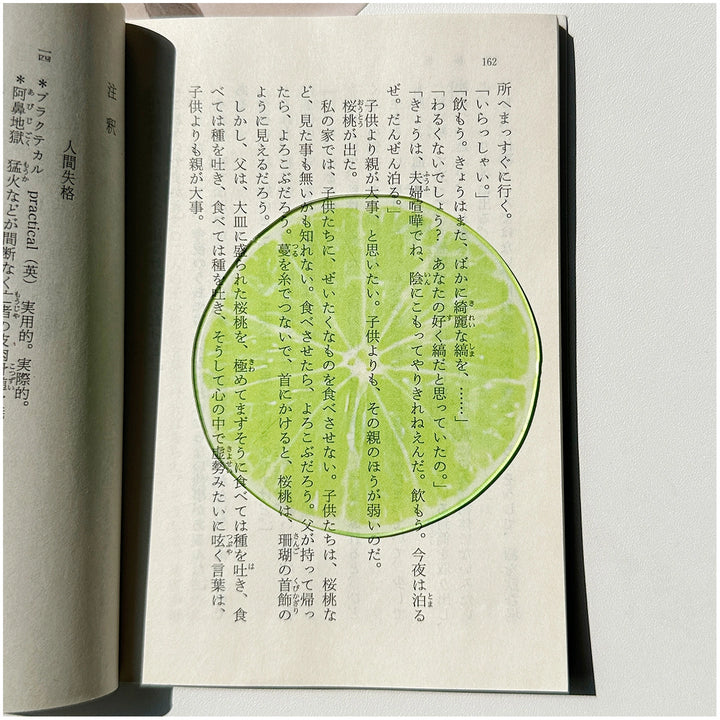 162
所へまっすぐに行く。
「いらっしゃい。」
「飲もう。きょうはまた、ばかに綺麗な縞を、……」
「わるくないでしょう？　あなたの好く縞だと思っていたの。」
「きょうは、夫婦喧嘩でね、陰にこもってやりきれねえんだ。飲もう。今夜は泊る
ぜ。だんぜん泊る。」
子供より親が大事、と思いたい。子供よりも、その親のほうが弱いのだ。
桜桃が出た。
私の家では、子供たちに、ぜいたくなものを食べさせない。子供たちは、桜桃な
ど、見た事も無いかも知れない。食べさせたら、よろこぶだろう。父が持って帰っ
たら、よろこぶだろう。蔓を糸でつないで、首にかけると、桜桃は、珊瑚の首飾の
ように見えるだろう。
しかし、父は、大皿に盛られた桜桃を、極めてまずそうに食べては種を吐き、食
べては種を吐き、食べては種を吐き、そうして心の中で虚勢みたいに呟く言葉は、
子供よりも親が大事。
注釈
人間失格
一四
＊プラクテカル　practical（英）　実用的。実際的。
＊阿鼻地獄　猛火などが間断なく亡者の